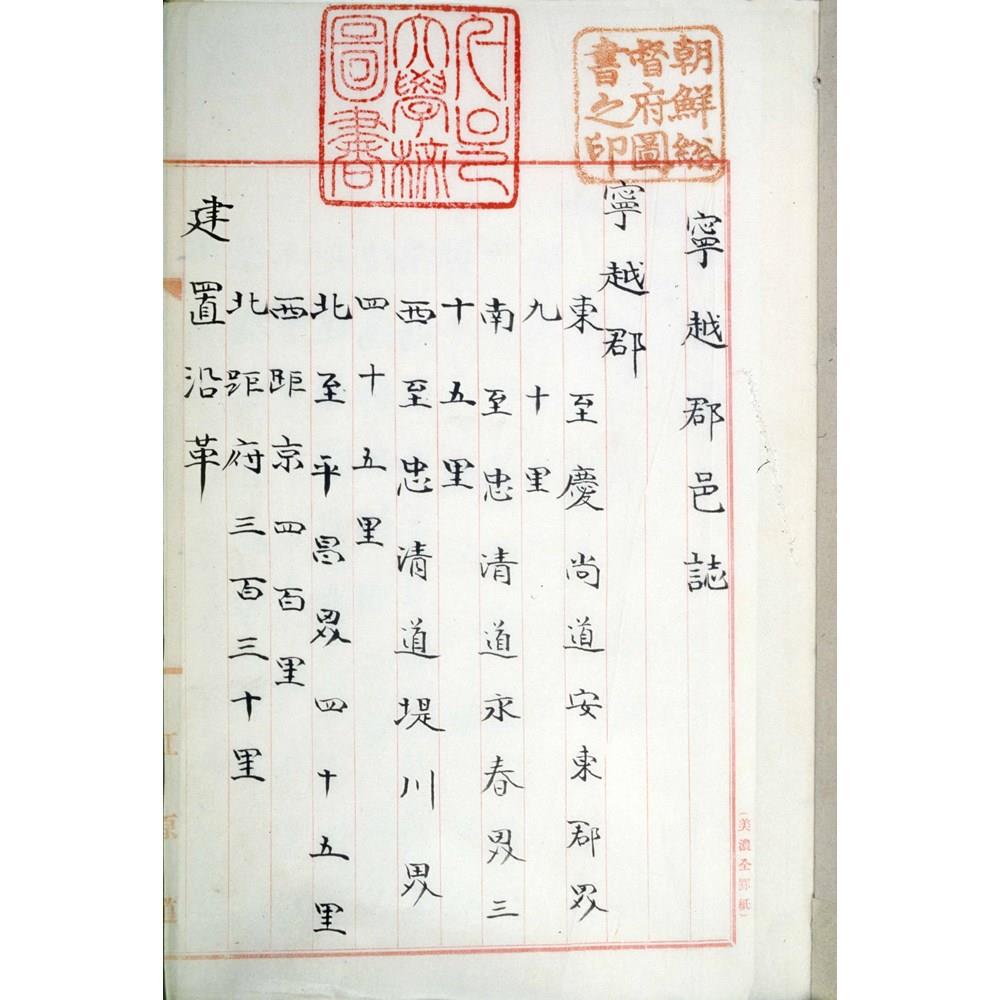 朝鮮総
督府圖
書之印
서울
大學校
圖書
寧越郡邑誌
寧越郡
東至慶尚道安東郡界
九十里
南至忠清道永春界三
十五里
西至忠清道堤川界
四十五里
北至平昌界四十五里
西距京四百里
北距府三百三十里
建置沿革
（美濃全罫紙）